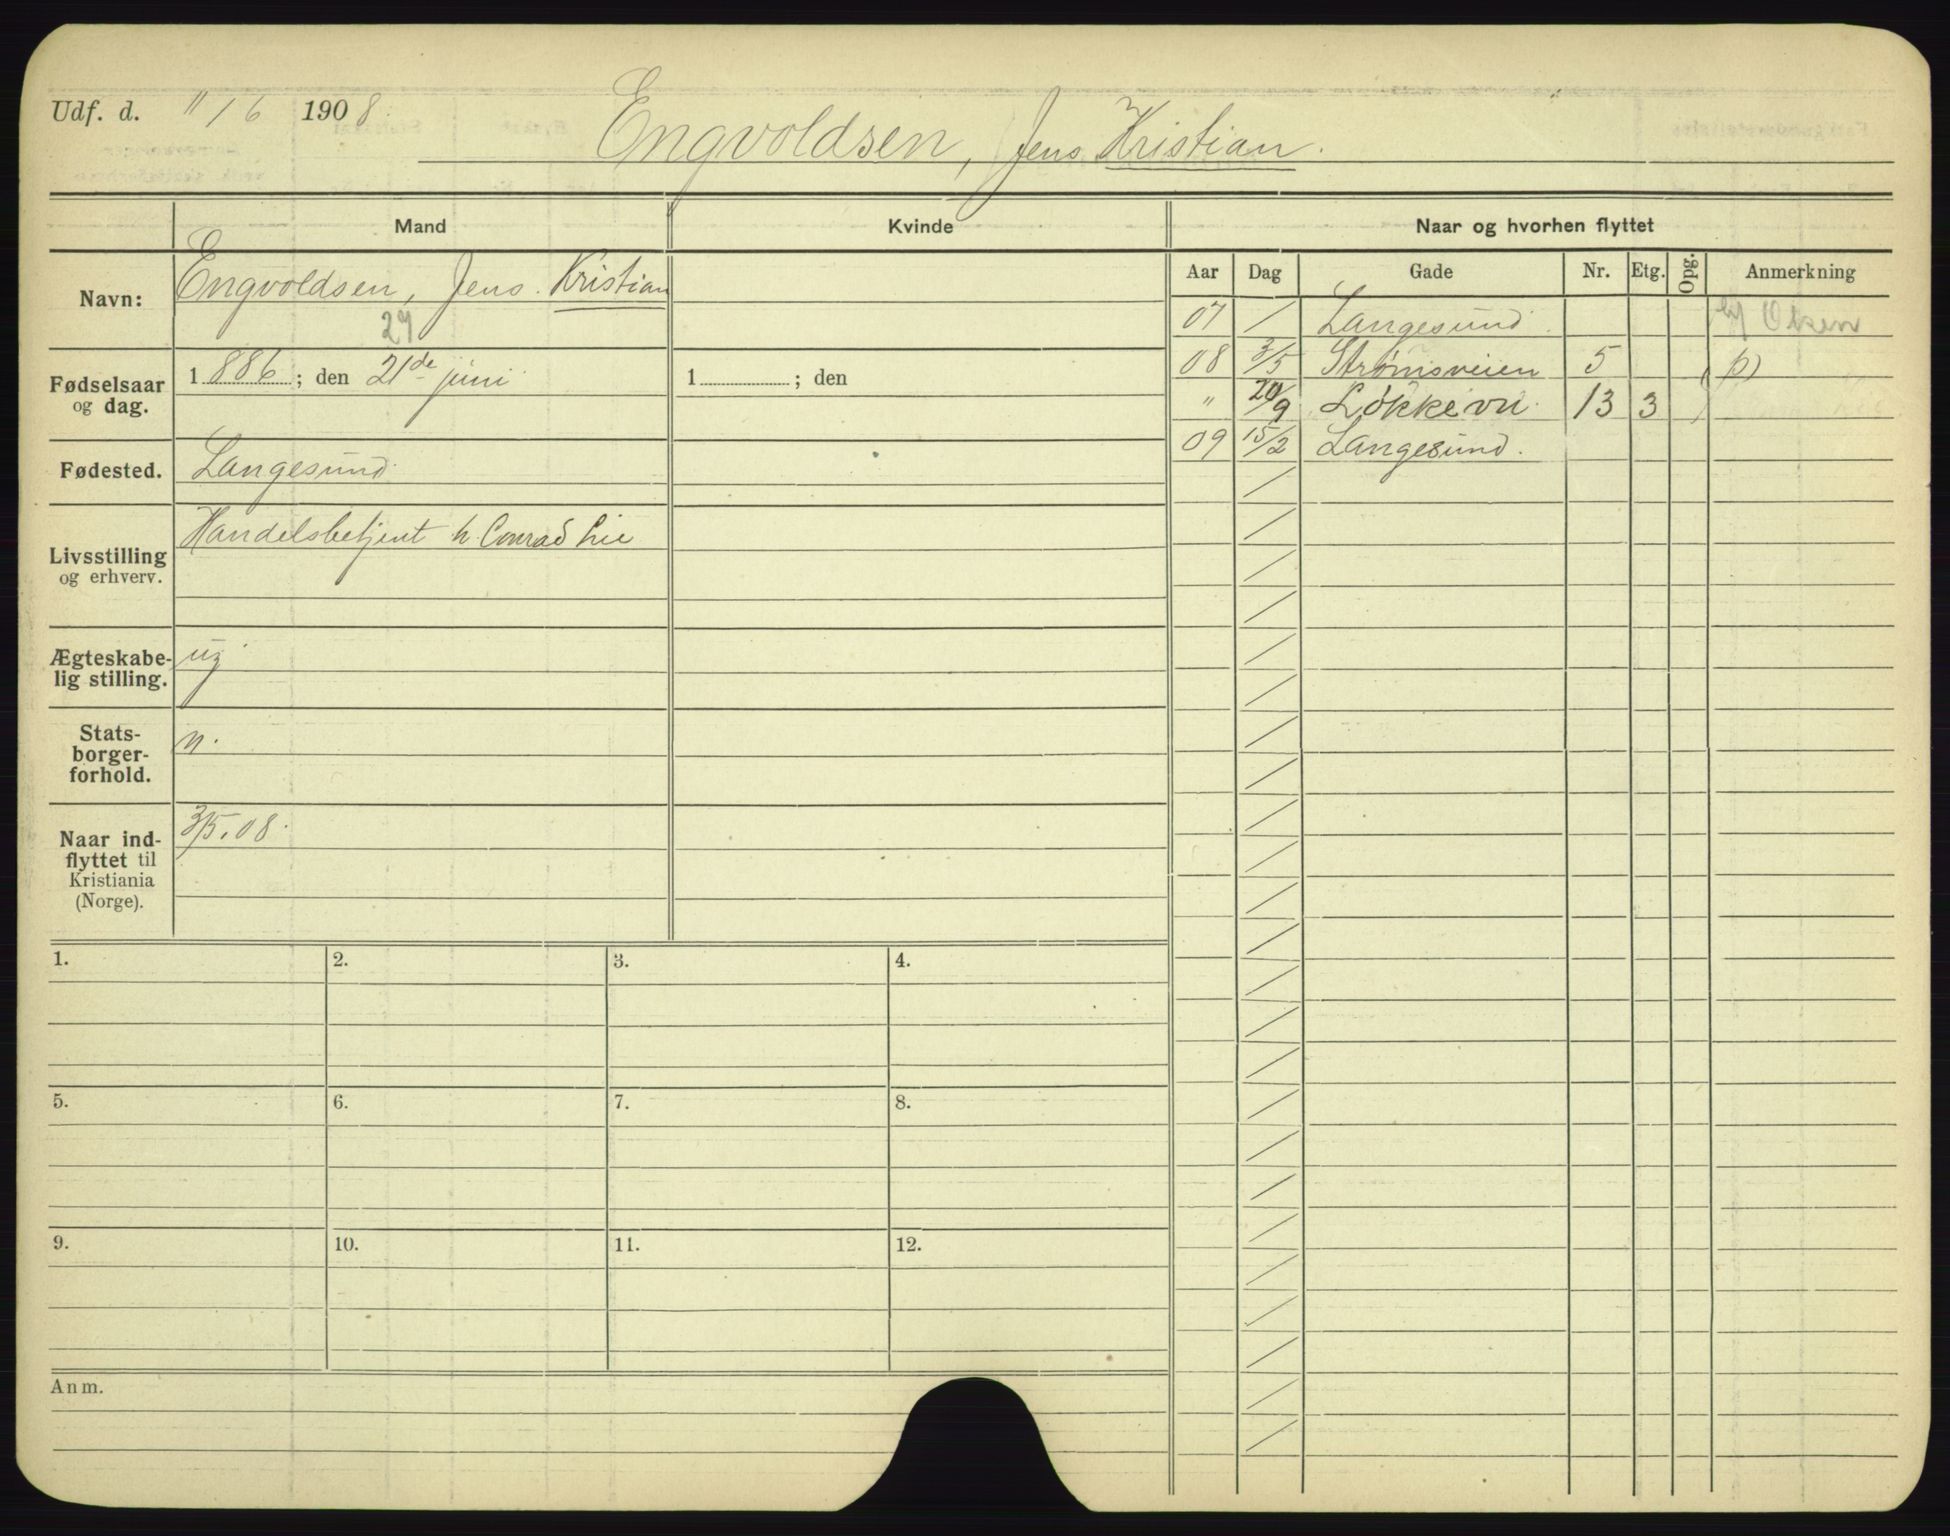 Udf. d. 11/6 1908.
Engvoldsen, Jens Kristian.
Mand
Kvinde
Naar og hvorhen flyttet
Aar Dag Gade Nr. Etg. Opg. Anmerkning
Navn: Engvoldsen, Jens Kristian
Fødselsaar og dag. 1886; den 21de juni
1 ; den
Fødested. Langesund
Livsstilling og erhverv. Handelsbetjent h. Conrad Lie
Ægteskabelig stilling. ug
Statsborgerforhold. n.
Naar indflyttet til Kristiania (Norge). 3/5.08.
07 / Langesund Olsen
08 3/5 Strømsveien 5 (p)
" 20/9 Løkkevn. 13 3
09 15/2 Langesund.
1. 2. 3. 4.
5. 6. 7. 8.
9. 10. 11. 12.
Anm.